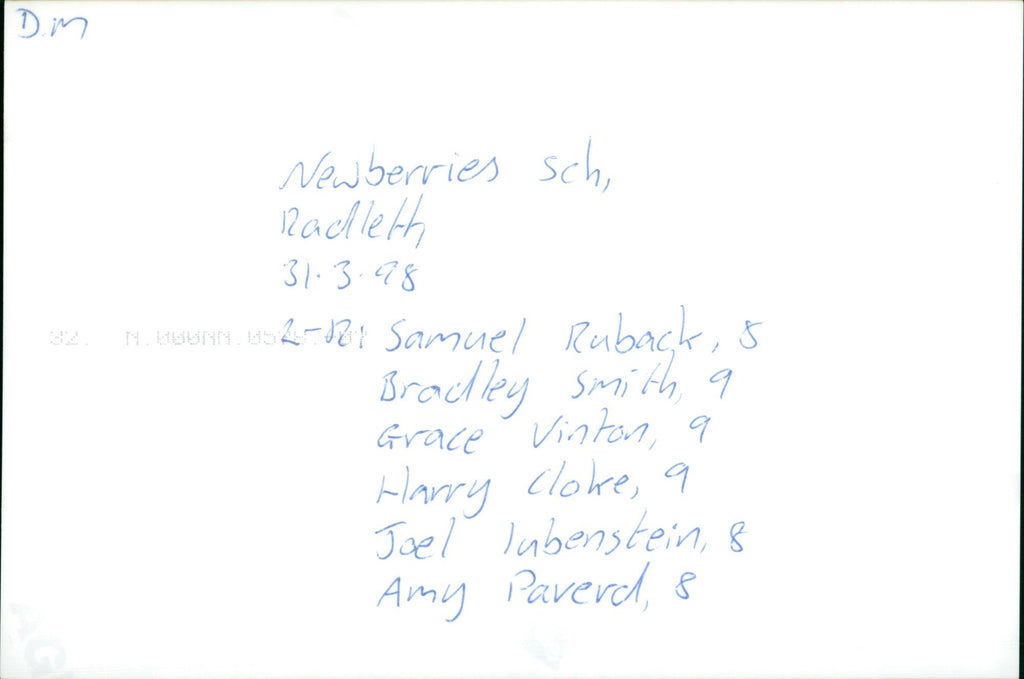 D.M
Newberries Sch,
Radlett
31.3.98
L-R: Samuel Ruback, 8
Bradley Smith, 9
Grace Vinton, 9
Harry Cloke, 9
Joel Lubenstein, 8
Amy Paverd, 8